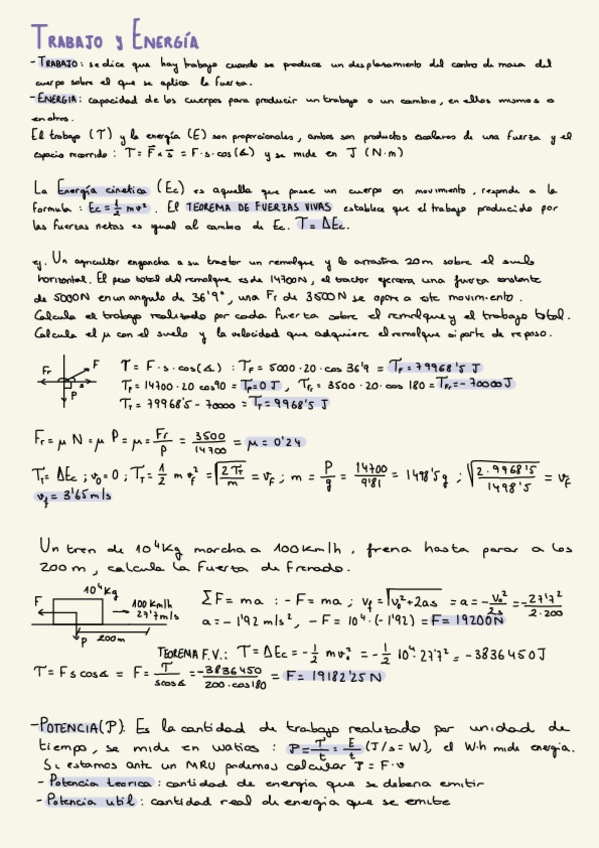 TRABAJO y ENERGÍA
- TRABAJO: se dice que hay trabajo cuando se produce un desplasamiento del centro de masa del
cuerpo sobre el que se aplica la fuerza.
- ENERGIA: capacidad de los cuerpos para producir un trabajo o un cambio, en ellos mismos o
en otros.
El trabajo (T) y la energía (E) son proporcionales, ambos son productos escalares de una fuerza y el
espacio recorrido: T = F x s = F·s·cos(∡) y se mide en J (N·m)
La Energía cinetica (Ec) es aquella que posee un cuerpo en movimiento, responde a la
formula: Ec = 1/2 mv². El TEOREMA DE FUERZAS VIVAS establece que el trabajo producido por
las fuerzas netas es igual al cambio de Ec. T = ΔEc.
ej. Un agricultor engancha a su tractor un remolque y lo arrastra 20m sobre el suelo
horizontal. El peso total del remolque es de 14700N, el tractor ejercera una fuerza constante
de 5000N en un angulo de 36'9°, una Fr de 3500N se opone a este movimiento.
Calcula el trabajo realizado por cada fuerza sobre el remolque y el trabajo total.
Calcula el μ con el suelo y la velocidad que adquiere el remolque si parte de reposo.
Fr F s P
T = F·s·cos(∡) : T_F = 5000·20·cos 36'9 = T_F = 79968'5 J
T_P = 14700·20 cos90 = T_P=0 J , T_Fr = 3500·20·cos 180 = T_Fr = -70000J
T_T = 79968'5 - 70000 = T_T = 9968'5 J
Fr = μ N = μ P = μ = Fr/P = 3500/14700 = μ = 0'24
T_T = ΔEc ; v₀ = 0 ; T_T = 1/2 m v_f² = √(2T_T/m) = v_F ; m = P/g = 14700/9'81 = 1498'5g ; √(2·9968'5/1498'5) = v_F
v_f = 3'65 m/s
Un tren de 10⁴Kg marcha a 100Km/h, frena hasta parar a los
200m, calcula la Fuerza de Frenado.
10⁴Kg
F 100 Km/h
27'7 m/s
P 200m
ΣF = ma : -F = ma ; v_f = √(v₀²+2as) = a = -v₀²/2s = -27'7²/2·200
a = -1'92 m/s², -F = 10⁴·(-1'92) = F = 19200N
TEOREMA F.V.: T = ΔEc = -1/2 mv₀² = -1/2 10⁴·27'7² = -3836450J
T = F s cos∡ = F = T/s cos∡ = -3836450/200·cos180 = F = 19182'25 N
- POTENCIA (P): Es la cantidad de trabajo realizado por unidad de
tiempo, se mide en watios : P = T/t = E/t (J/s = W), el W·h mide energia.
Si estamos ante un MRU podemos calcular T = F·v
- Potencia teorica: cantidad de energia que se deberia emitir
- Potencia util: cantidad real de energia que se emite